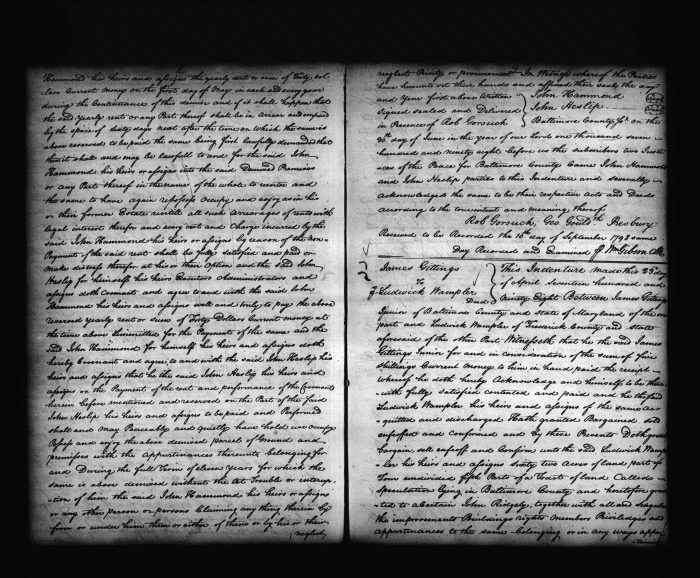 Hammond his heirs and assigns the yearly rent or sum of Forty dol
-lars Current money on the first day of May in each and every year
during the Continuance of this demise and if it shall happen that
the said Yearly rent or any Part thereof shall be in Arrear and unpaid
by the space of sixty days next after the time on which the same is
above reserved to be paid the same being first lawfully demanded that
then it shall and may be lawfull to and for the said John
Hammond his heirs or assigns into the said Demised Premises
or any Part thereof in the name of the whole to reenter and
the same to have again repossess Occupy and enjoy as in his
or their former Estate untill all such Arrearages of rent with
legal interest therefor and every cost and Charge incurred by the
said John Hammond his heirs or assigns by reason of the non-
Payment of the said rent shall be fully satisfied and paid or
make distress therefor at his or their Option and the said John
Heslip for himself his heirs Executors Administrators and
assigns doth Covenant and agree to and with the said John
Hammond his heirs and assigns well and truly to pay the above
reserved yearly rent or sum of Forty Dollars Current money at
the time above limmitted for the Payment of the same and the
said John Hammond for himself his heirs and assigns doth
hereby Covenant and agree to and with the said John Heslip his
heirs and assigns that he the said John Heslip his heirs and
assigns on the Payment of the rent and performance of the Covenants
herein before mentioned and reserved on the Part of the said
John Heslip his heirs and assigns to be paid and Performed
shall and may Peaceably and quietly have hold use occupy
Possess and enjoy the above demised parcel of Ground and
premises with the appurtenances thereunto belonging for
and During the full Term of eleven Years for which the
same is above demised without the let Trouble or interup
-tion of him the said John Hammond his heirs or assigns
or any other person or persons claiming any thing therein by
from or under him them or either of them or by his or their
neglect
neglect Privity or procurement In Witness whereof the Parties
have hereunto set their hands and affixed their seals the day
and Year first above Written John Hammond (seal)
Signed sealed and Delivered John Heslip (seal)
in Presence of Rob Gorsuck Baltimore County Sc. on the
26th day of June in the year of our Lord one thousand seven
hundred and ninety eight before us the subscribers two Just
-ices of the Peace for Baltimore County Came John Hammond
and John Heslip parties to this Indenture and severally
acknowledged the same to be their respective acts and Deeds
according to the true intent and meaning thereof
Rob Gorsuck, Geo. Goulds. Presbury
Received to be Recorded the 15th day of September 1798 same
Day Recorded and Examined Wm Gibson Clk
James Gittings This Indenture made this 23d day
To of April Seventeen hundred and
Ludwick Wampler Ninety Eight Between James Gittings
Deed
Junior of Baltimore County and state of Maryland of the one
part and Ludwick Wampler of Frederick County and state
aforesaid of the other Part Witnesseth that he the said James
Gittings Junior for and in consideration of the sum of five
shillings Current money to him in hand paid the receipt
whereof he doth hereby Acknowledge and himself to be there
with fully satisfied contented and paid and he the said
Ludwick Wampler his heirs and assigns of the same Ac
-quitted and discharged Hath granted Bargained sold
enfeoffed and confirmed and by these Presents Doth grant
bargain sell enfeoff and Confirm unto the said Ludwick Wamp
-ler his heirs and assigns sixty two Acres of land part of
Four undivided fifth Part of a Tract of land Called
speculation lying in Baltimore County and heretofore gran
-ted to a bertain John Ridgely, together with all and singular
the improvements Buildings rights Members Priviledges and
appurtenances to the same belonging or in any ways apper